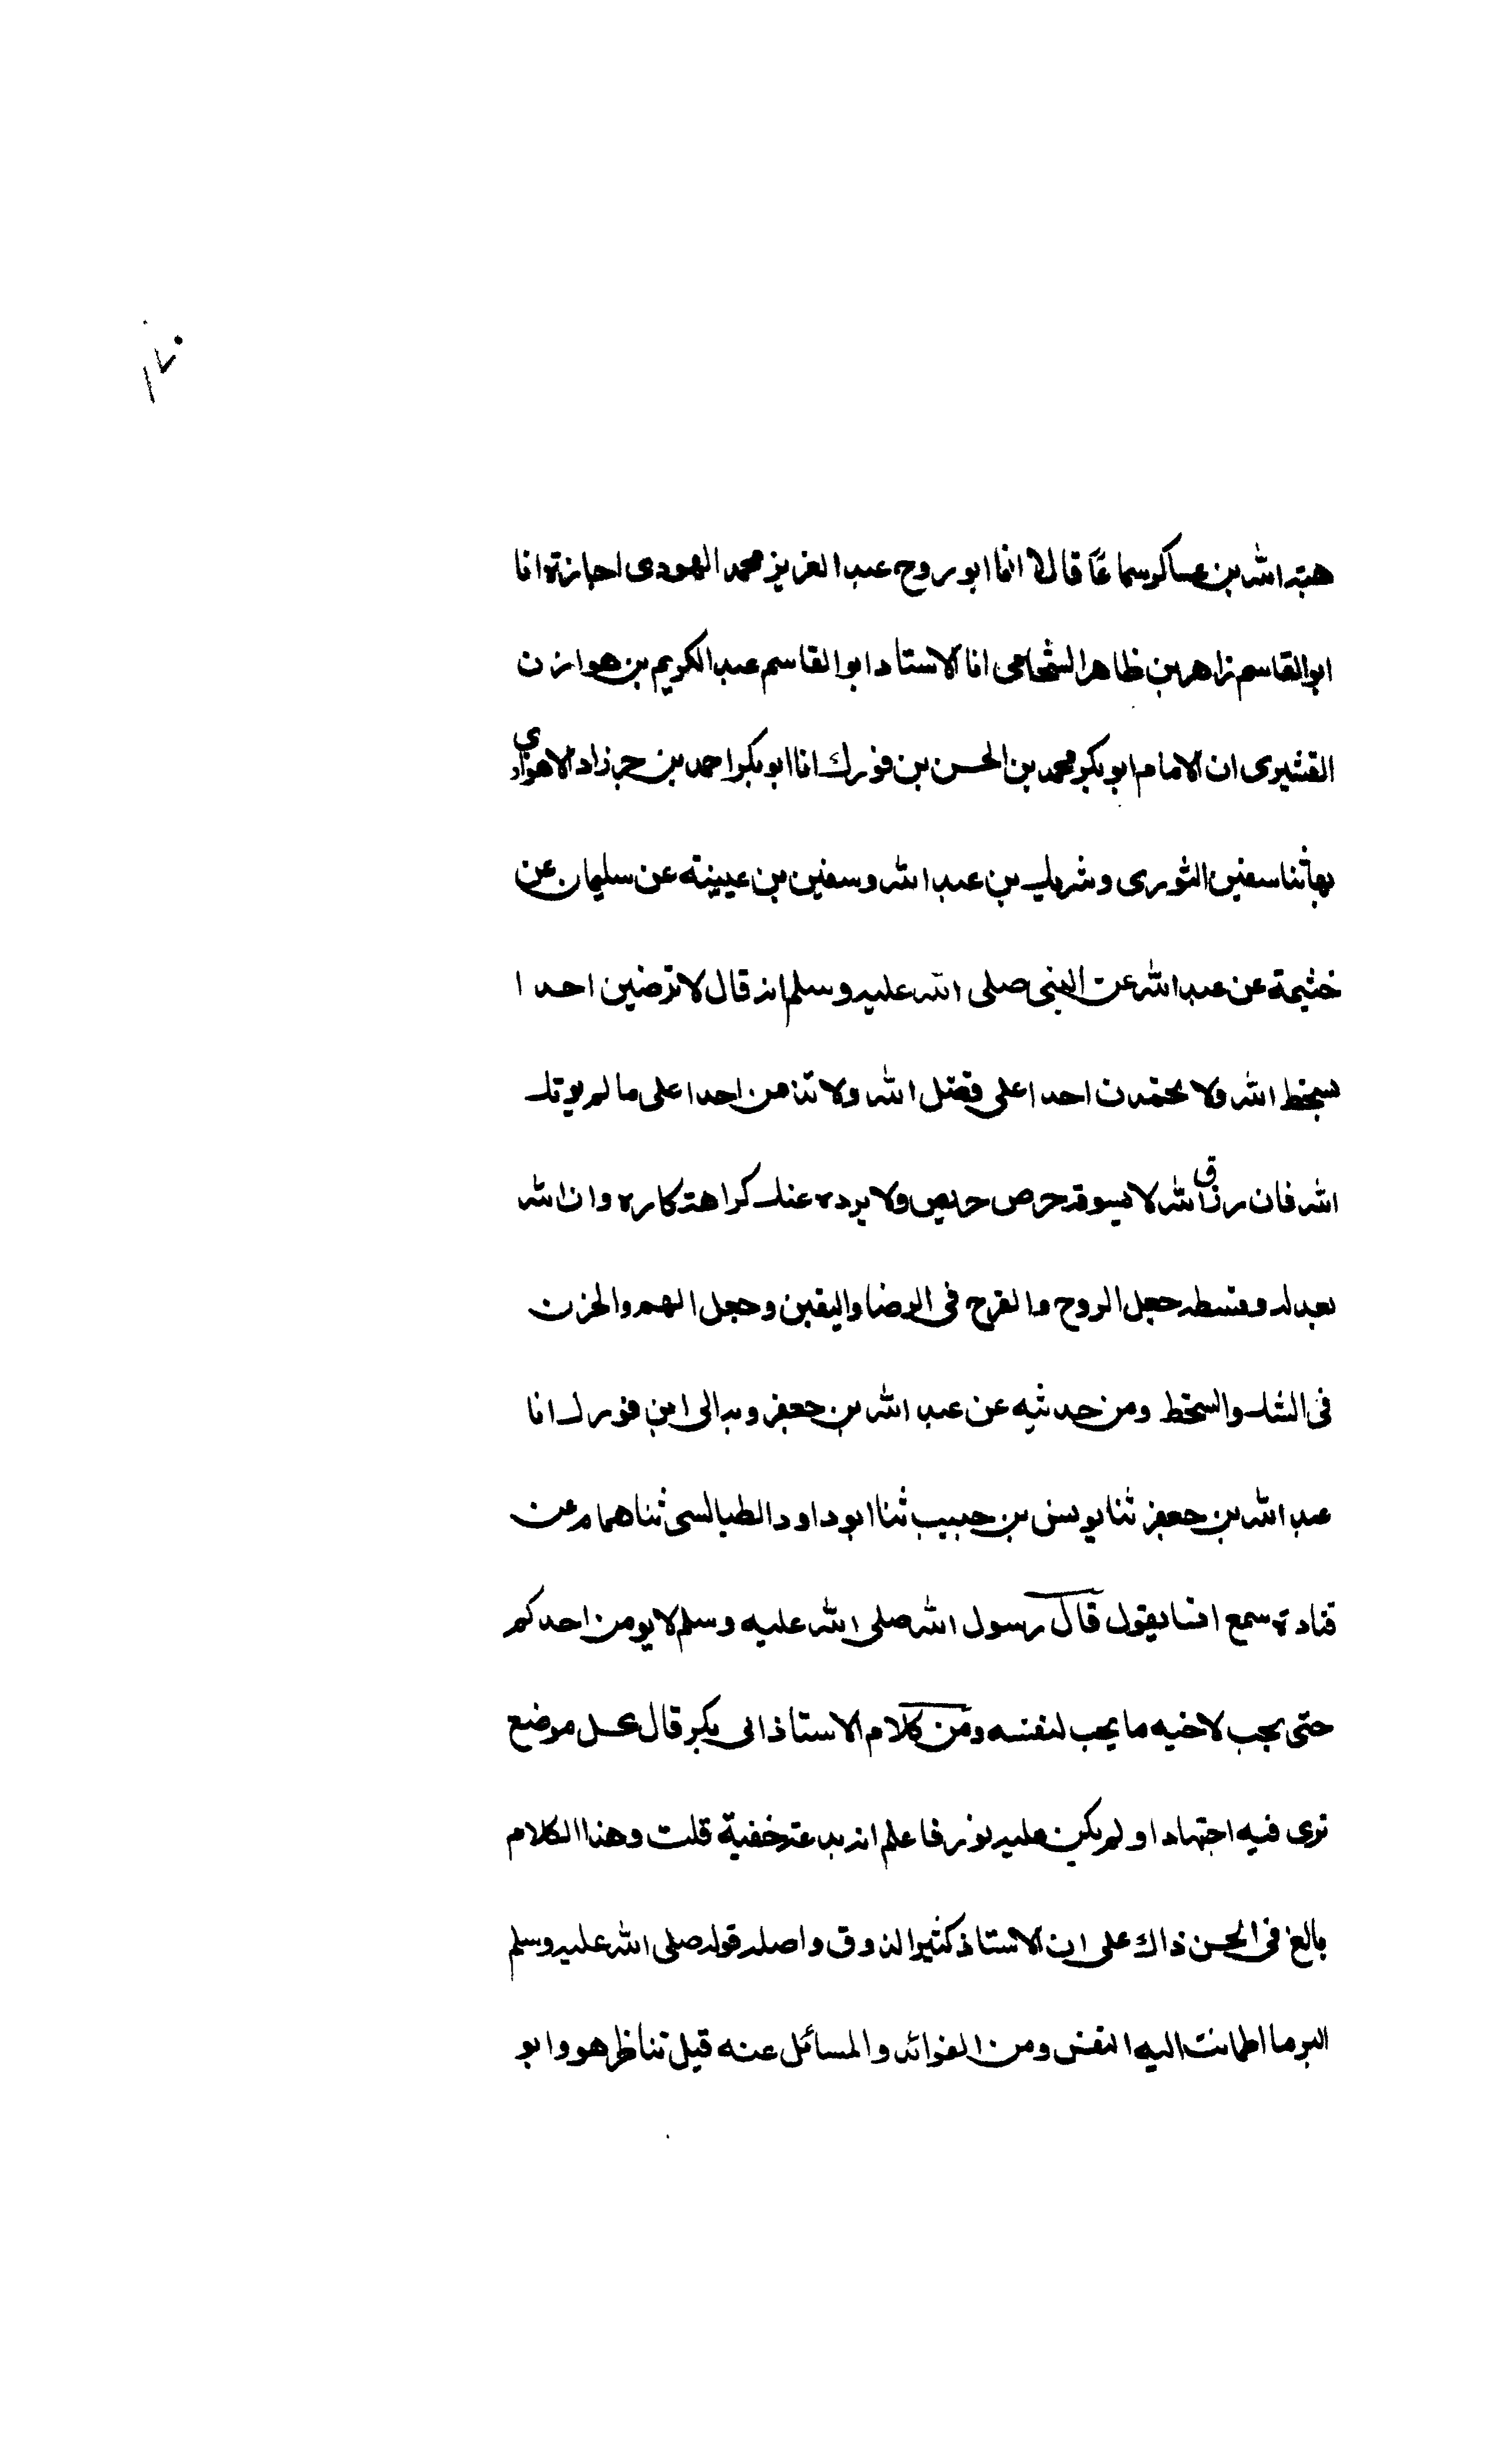 ١٧٠
هبة الله بن عساكر سماعًا قالا انا ابو روح عبد العزيز محمد الهودى اجازة انا
ابو القاسم زاهر بن ظاهر الشحامى انا الاستاد ابو القاسم عبد الكريم بن هوازن
القشيرى ان الامام ابو بكر محمد بن الحسن بن فورك انا ابو بكر احمد بن خرزاد الاهوازي
بها ثنا سفين الثورى وشريك بن عبد الله وسفين بن عيينة عن سليمان عن
خثيمة عن عبد الله عن النبى صلى الله عليه وسلم انه قال لا ترضين احدا
بسخط الله ولا تحمدن احدا على فضل الله ولا تذمن احدا على ما لم يوتك
الله فان رزق الله لا يسوقه حرص حريص ولا يرده عنك كراهة كاره وان الله
بعدله وقسطه جعل الروح والفرح فى الرضا واليقين وجعل الهم والحزن
فى الشك والسخط ومن حديثه عن عبد الله بن جعفر وبه الى ابن فورك انا
عبد الله بن جعفر ثنا يونس بن حبيب ثنا ابو داود الطيالسى ثنا همام عن
قتادة سمع انسا يقول قال رسول الله صلى الله عليه وسلم لا يومن احدكم
حتى يحب لاخيه ما يحب لنفسه ومن كلام الاستاذ ابى بكر قال كل موضع
ترى فيه اجتهادا ولم يكن عليه نور فاعلم انه بدعة خفية قلت وهذا الكلام
بالغ فى الحسن ذاك على ان الاستاذ كثير الذوق واصله قوله صلى الله عليه وسلم
البر ما اطمانت اليه النفس ومن الفوائد والمسائل عنه قيل تناظر هو وابو